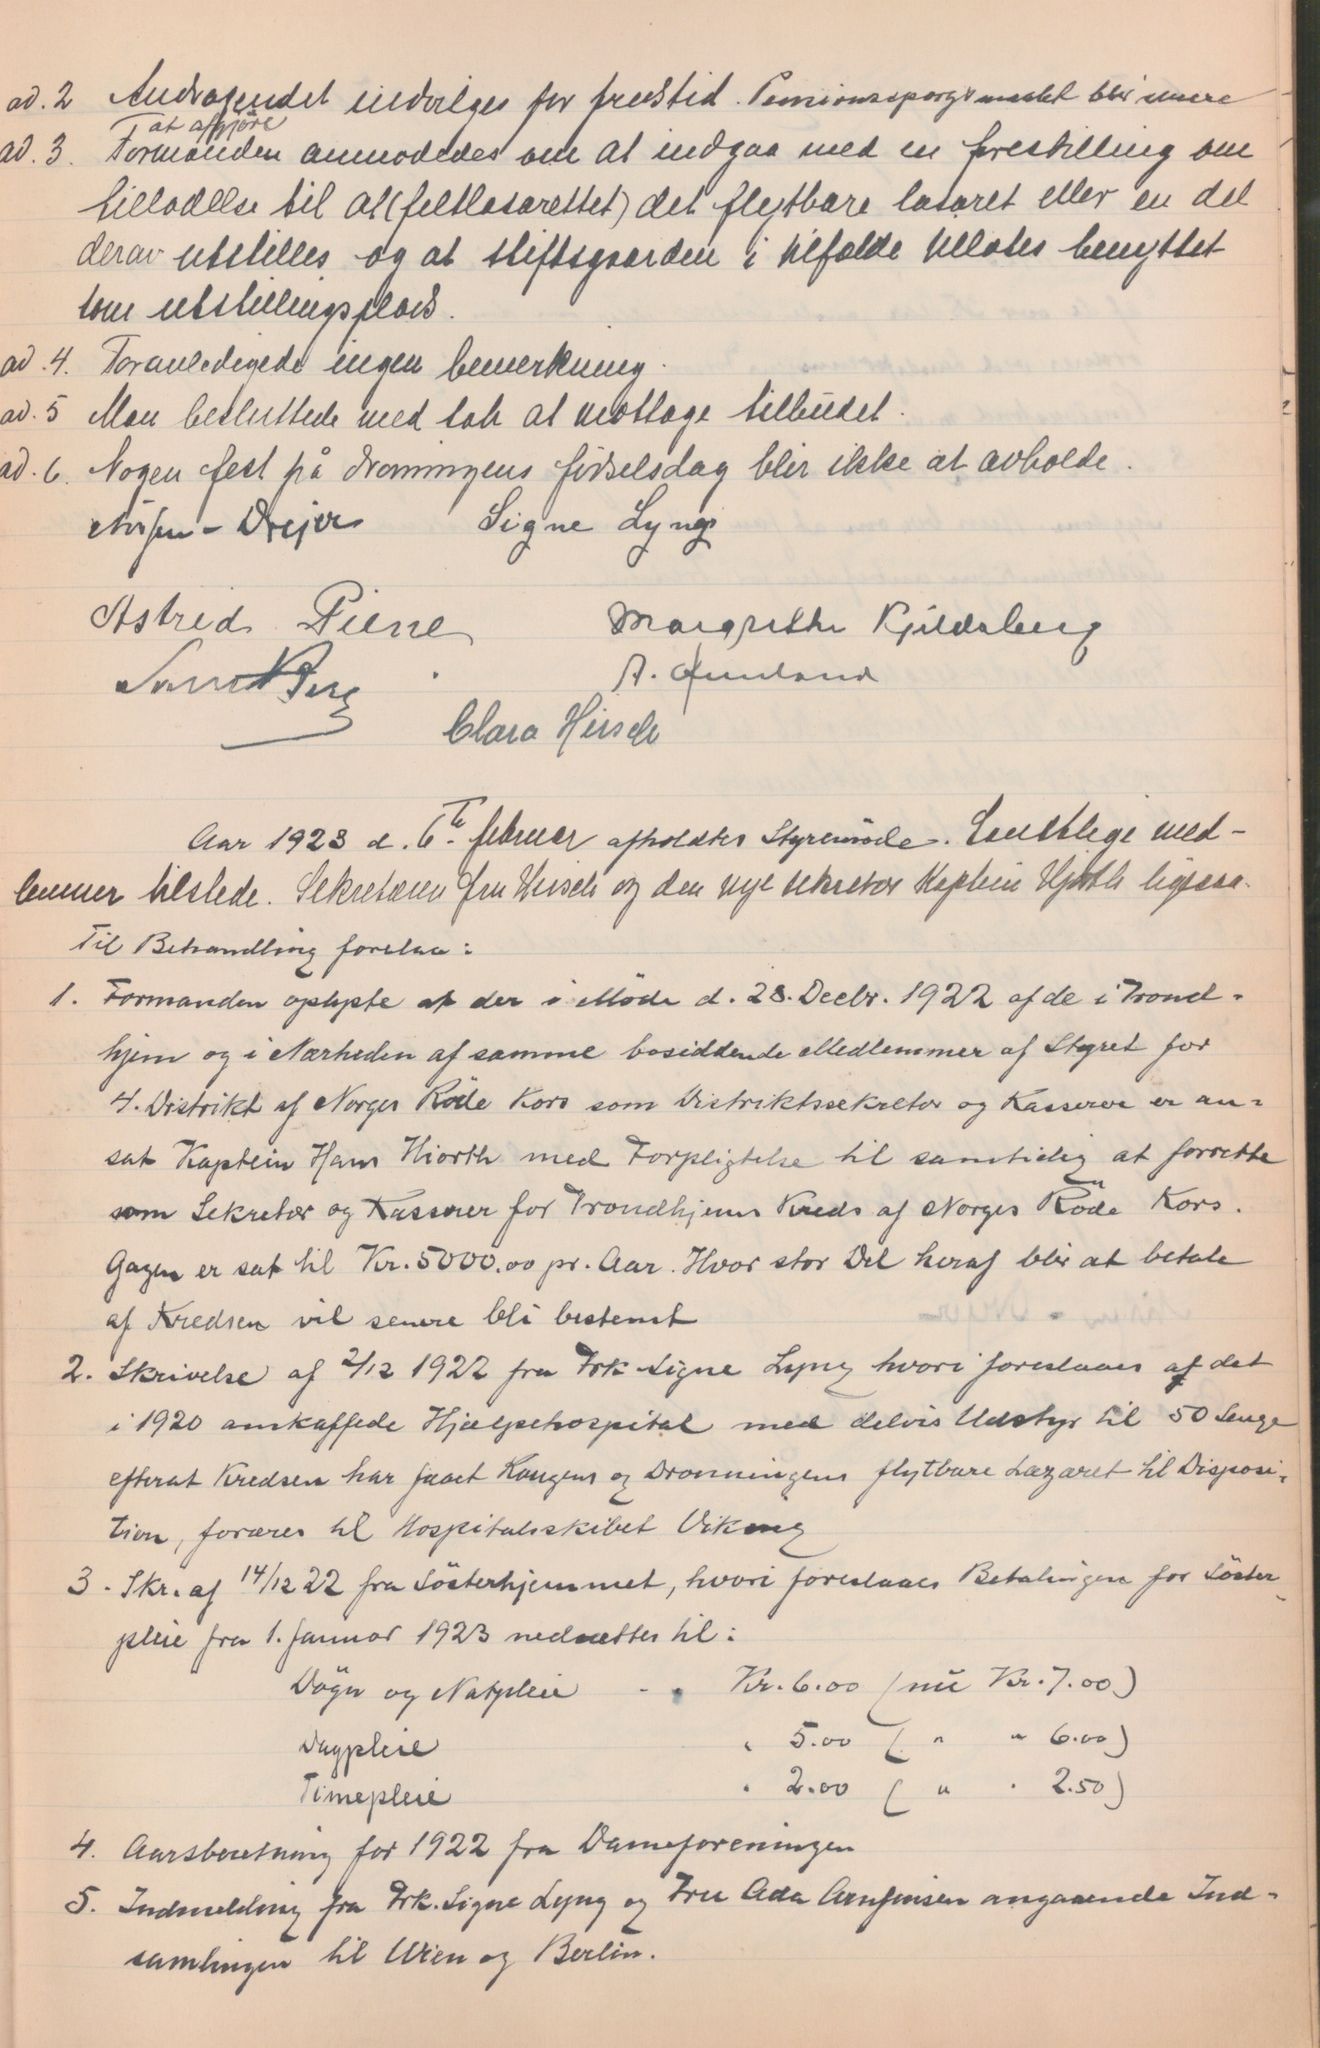 ad. 2 Andragendet indvilges for fredstid. Pensionsspørgsmaalet blir senere
at afgjöre
ad. 3. Formanden anmodedes om at indgaa med en forestilling om
tilladelse til at (feltlasarettet) det flytbare lasaret eller en del
derav utstilles og at stiftsgaarden i tilfælde tillates benyttet
som utstillingsplads.
ad. 4. Foranledigede ingen bemerkning.
ad. 5 Man besluttede med tak at mottage tilbudet.
ad. 6. Nogen fest på dronningens födselsdag blir ikke at avholde.
Drejer Signe Lyng
Astrid Piene Margrethe Kjeldsberg
A.
Clara Hirsch
Aar 1923 d. 6te februar afholdtes Styremöde. Samtlige med-
lemmer tilstede. Sekretæren fru Hirsch og den nye sekretær Kaptein Hjorth ligesaa.
Til Behandling forelaa:
1. Formanden oplyste at der i Möde d. 28. Decbr. 1922 af de i Trond-
hjem og i Nærheden af samme bosiddende Medlemmer af Styret for
4. Distrikt af Norges Röde Kors som Distriktssekretær og Kasserer er an-
sat Kaptein Hans Hiorth med Forpligtelse til samtidig at forrette
som Sekretær og Kasserer for Trondhjems Kreds af Norges Röde Kors.
Gagen er sat til Kr. 5000.00 pr. Aar. Hvor stor Del heraf blir at betale
af Kredsen vil senere bli bestemt
2. Skrivelse af 2/12 1922 fra Frk Signe Lyng hvori foreslaaes at det
i 1920 anskaffede Hjælpehospital med delvis Udstyr til 50 Senge
efterat Kredsen har faaet Kongens og Dronningens flytbare Lazaret til Disposi-
tion, foræres til Hospitalsskibet Viking
3. Skr. af 14/12 22 fra Sösterhjemmet, hvori foreslaaes Betalingen for Söster-
pleie fra 1. Januar 1923 nedsættes til:
Dögn og Natpleie - " Kr. 6.00 (nu Kr. 7.00)
Dagpleie " 5.00 ( " " 6.00)
Timepleie " 2.00 ( " " 2.50)
4. Aarsberetning for 1922 fra Dameforeningen
5. Indmelding fra Frk. Signe Lyng og Fru Ada Arnfinsen angaaende Ind-
samlingen til Wien og Berlin.